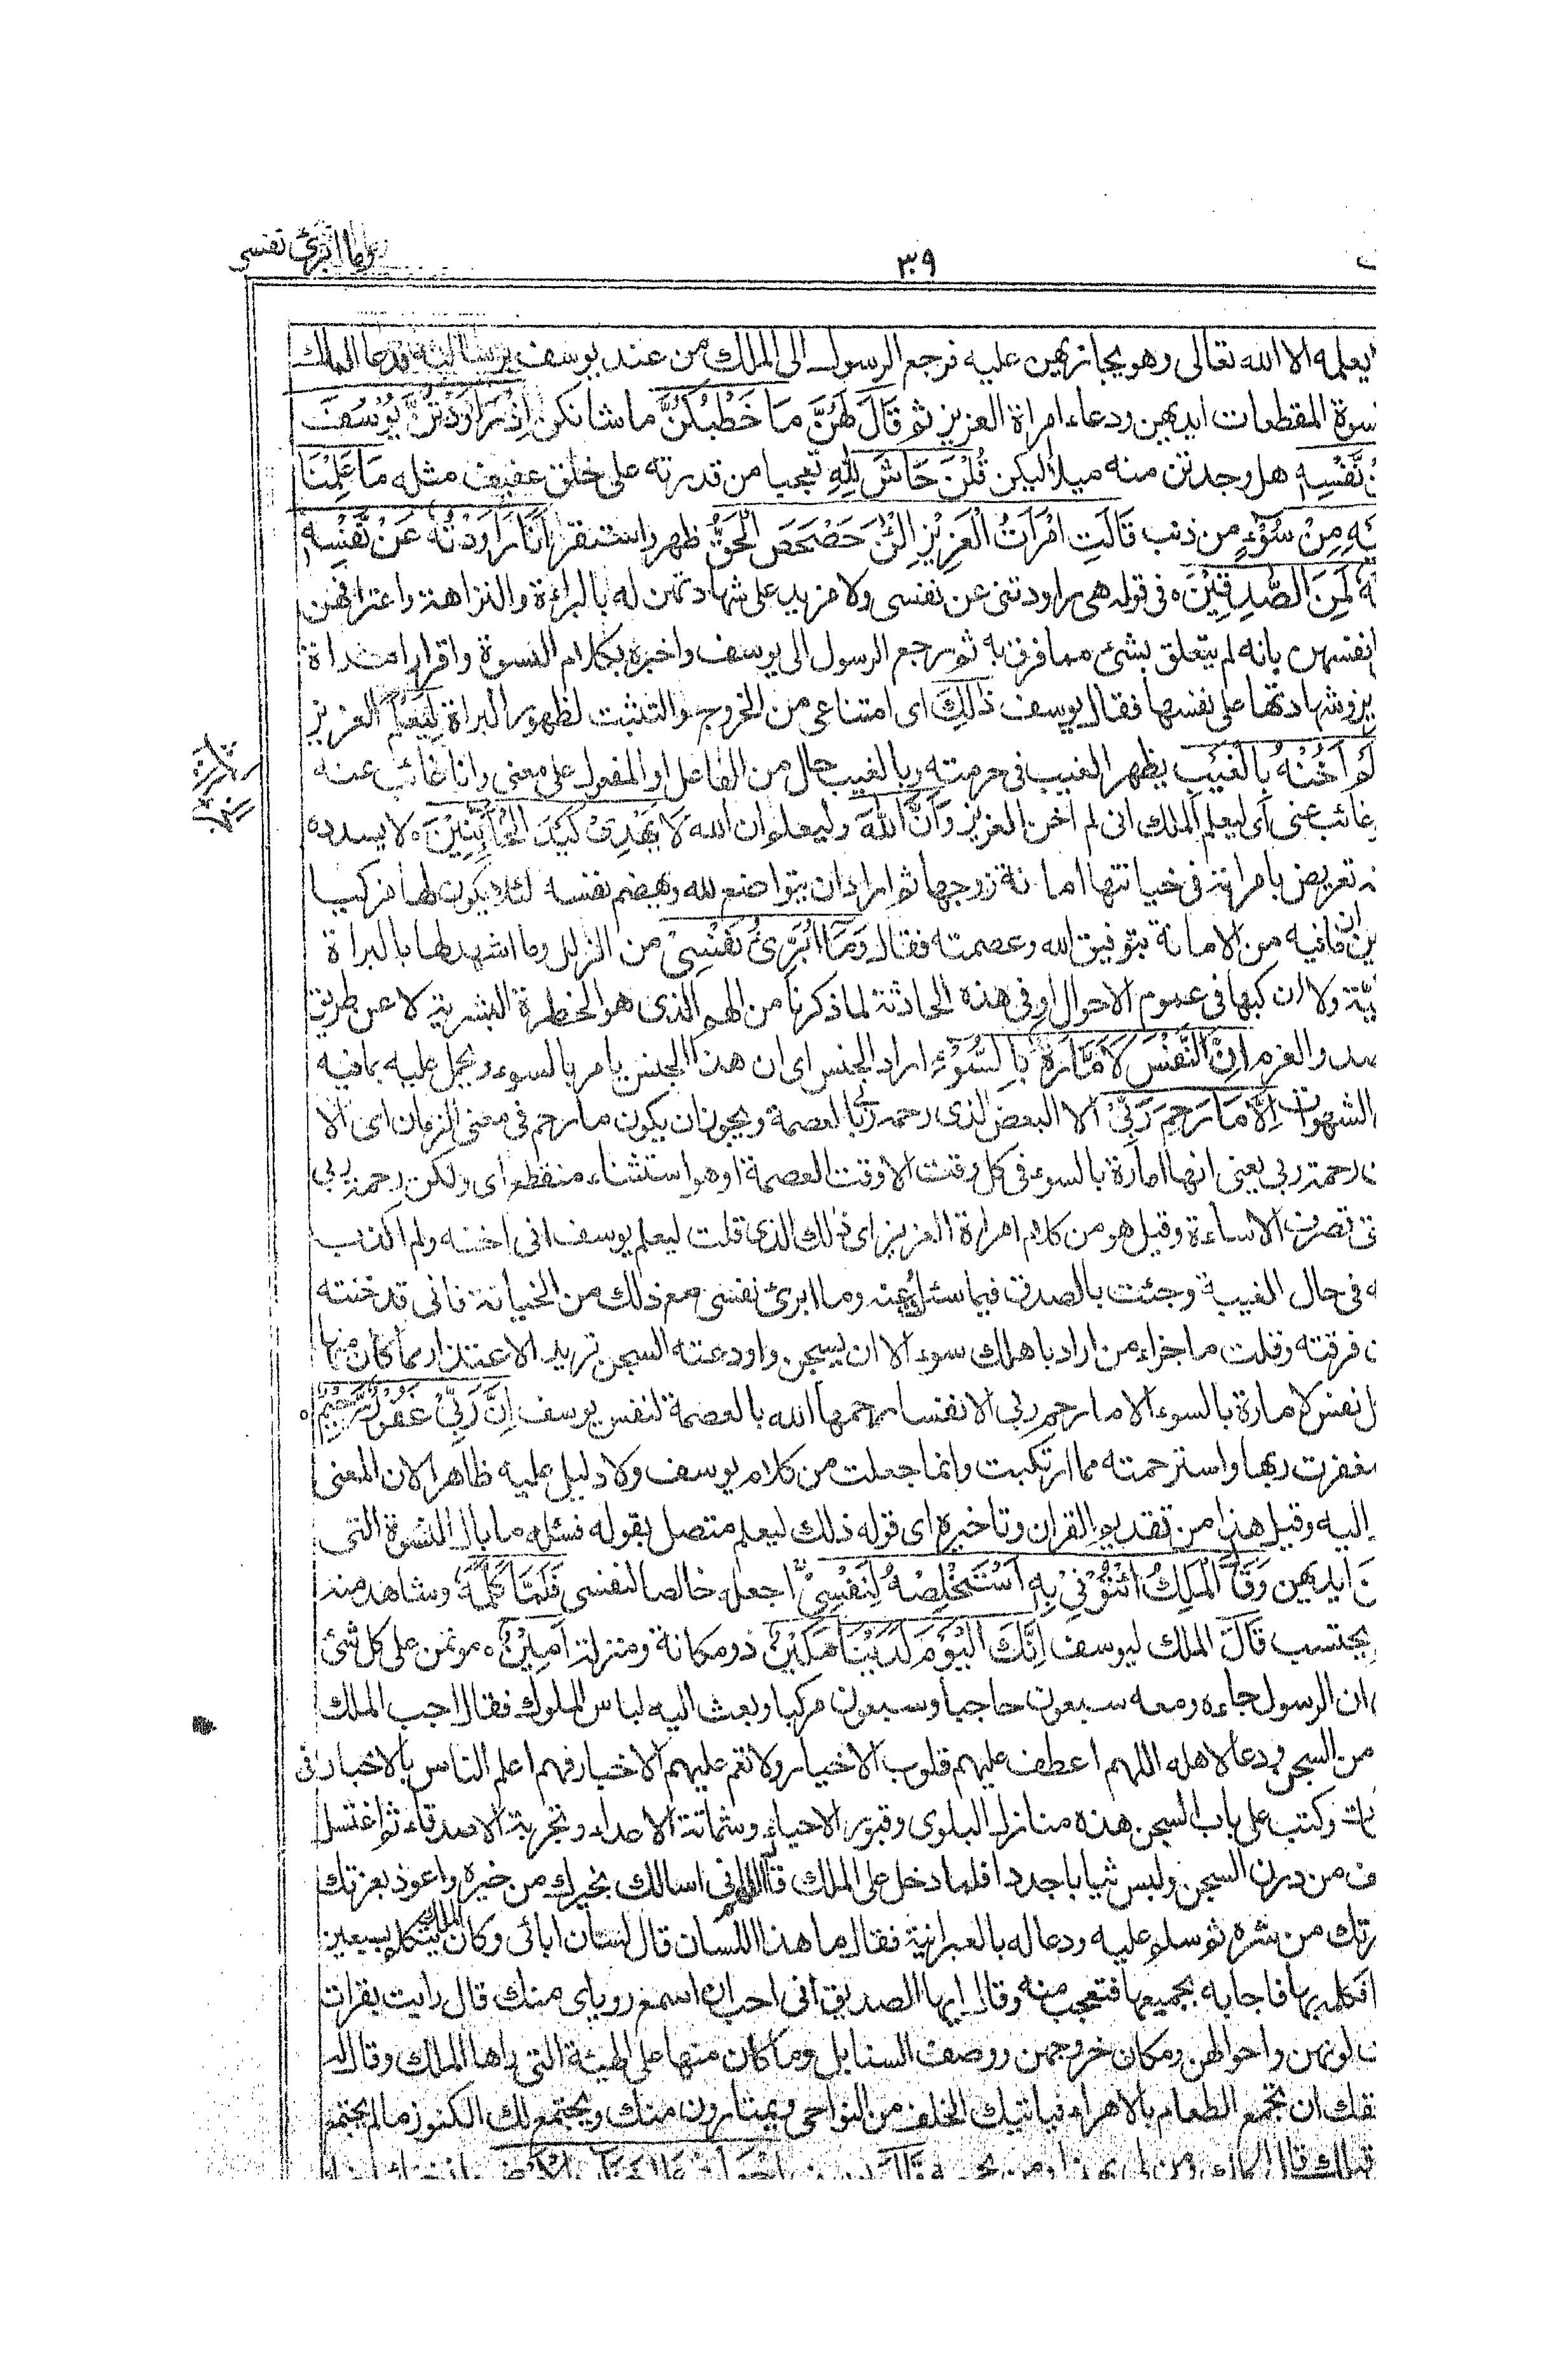 وما ابرئ نفسي
٣٠٩
يعلمه الا الله تعالى وهو يجازيهن عليه فرجع الرسول الى الملك من عند يوسف برسالته فدعا الملك
سوة المقطعات ايديهن ودعاء امراة العزيز ثم قَالَ لَهُنَّ مَا خَطْبُكُنَّ ما شانكن اِذْ رَاوَدْتُّنَّ يُوْسُفَ
نَّفْسِهٖ هل وجدتن منه ميلا اليكن قُلْنَ حَاشَ لِلّٰهِ تعجبا من قدرته على خلق عفيف مثله مَا عَلِمْنَا
يْهِ مِنْ سُوْٓءٍ من ذنب قَالَتِ امْرَاَتُ الْعَزِيْزِ الْـٰٔنَ حَصْحَصَ الْحَقُّ ظهر واستقر اَنَا رَاوَدْتُّهٗ عَنْ نَّفْسِهٖ
لَمِنَ الصّٰدِقِيْنَ ه فى قوله هى راودتنى عن نفسى ولا مزيد على شهادتهن له بالبراءة والنزاهة واعترافهن
انفسهن بانه لم يتعلق بشئ مما قرف به ثم رجع الرسول الى يوسف واخبره بكلام النسوة واقرار امراة
يز وشهادتها على نفسها فقال يوسف ذٰلِكَ اى امتناعى من الخروج والتثبت لظهور البراة لِيَعْلَمَ العزيز
لَمْ اَخُنْهُ بِالْغَيْبِ بظهر الغيب فى حرمته وبالغيب حال من الفاعل او المفعول على معنى وانا غائب عنه
غائب عنى اى ليعلم الملك انى لم اخن العزيز وَاَنَّ اللّٰهَ وليعلم ان الله لَا يَهْدِىْ كَيْدَ الْخَآئِنِيْنَ ه لا يسدده
تعريض بامراته فى خيانتها امانة زوجها ثم اراد ان يتواضع لله ويهضم نفسه لئلا يكون لها مزكيا
ين ان ما فيه من الامانة بتوفيق الله وعصمته فقال وَمَآ اُبَرِّئُ نَفْسِىْ من الزلل وما اشهد لها بالبراة
ية ولا ازكيها فى عموم الاحوال او فى هذه الحادثة لما ذكرنا من الهم الذى هو الخطرة البشرية لا عن طريق
صد والعزم اِنَّ النَّفْسَ لَاَمَّارَةٌۢ بِالسُّوْٓءِ اراد الجنس اى ان هذا الجنس يامر بالسوء ويحمل عليه بما فيه
الشهوات اِلَّا مَا رَحِمَ رَبِّىْ الا البعض الذى رحمه ربى بالعصمة ويجوز ان يكون ما رحم فى معنى الزمان اى الا
رحمة ربى يعنى انها امارة بالسوء فى كل وقت الا وقت العصمة او هو استثناء منقطع اى ولكن رحمة ربى
تى تصرف الاساءة وقيل هو من كلام امراة العزيز اى ذلك الذى قلت ليعلم يوسف انى لم اخنه ولم اكذب
ه فى حال الغيبة وجئت بالصدق فيما سئلت عنه وما ابرئ نفسى مع ذلك من الخيانة فانى قد خنته
ن فرقته وقلت ما جزاء من اراد باهلك سوء الا ان يسجن واودعته السجن تريد الاعتذار مما كان منها
ل نفس لامارة بالسوء الا ما رحم ربى الا نفسا رحمها الله بالعصمة كنفس يوسف اِنَّ رَبِّىْ غَفُوْرٌ رَّحِيْمٌ ه
ستغفرت ربها واسترحمته مما ارتكبت وانما جعلت من كلام يوسف ولا دليل عليه ظاهر الان المعنى
اليه وقيل هذا من تقديم القران وتاخيره اى قوله ذلك ليعلم متصل بقوله فسئله ما بال النسوة التى
ن ايديهن وَقَالَ الْمَلِكُ ائْتُوْنِىْ بِهٖٓ اَسْتَخْلِصْهُ لِنَفْسِىْ اجعله خالصا لنفسى فَلَمَّا كَلَّمَهٗ وشاهد منه
يحتسب قَالَ الملك ليوسف اِنَّكَ الْيَوْمَ لَدَيْنَا مَكِيْنٌ ذو مكانة ومنزلة اَمِيْنٌ ه مؤتمن على كل شئ
ان الرسول جاءه ومعه سبعون حاجبا وسبعون مركبا وبعث اليه لباس الملوك فقال اجب الملك
من السجن ودعا لاهله اللهم اعطف عليهم قلوب الاخيار ولا تعم عليهم الاخبار فهم اعلم الناس بالاخبار فى
ات وكتب على باب السجن هذه منازل البلوى وقبور الاحياء وشماتة الاعداء وتجربة الاصدقاء ثم اغتسل
ف من درن السجن ولبس ثيابا جددا فلما دخل على الملك قال انى اسالك بخيرك من خيره واعوذ بعزتك
رتك من شره ثم سلم عليه ودعا له بالعبرانية فقال ما هذا اللسان قال لسان ابائى وكان الملك يتكلم بسبعين
افكلمه بها فاجابه بجميعها فتعجب منه وقال ايها الصديق انى احب ان اسمع روياى منك قال رايت بقرات
لونهن واحوالهن ومكان خروجهن ووصف السنابل وما كان منها على الهيئة التى راها الملك وقال له
قك ان تجمع الطعام بالاهراء فياتيك الخلق من النواحى ويمتارون منك ويجتمع لك الكنوز ما لم يجتمع
قبلك قال الملك ومن لى بهذا ومن يجمعه